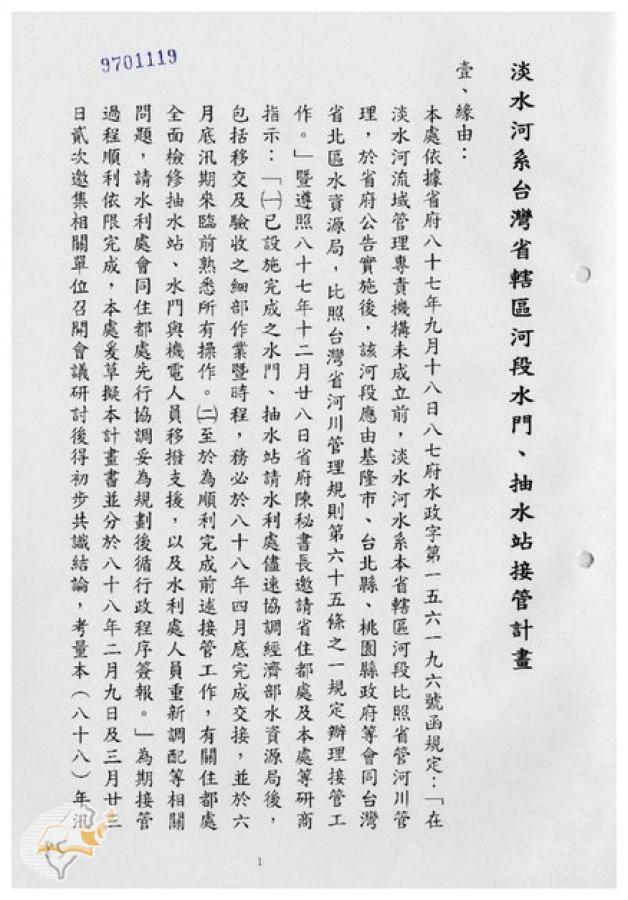 9701119
淡水河系台灣省轄區河段水門、抽水站接管計畫
壹、緣由：
本處依據省府八十七年九月十八日八七府水政字第一五六一九六號函規定：「在
淡水河流域管理專責機構未成立前，淡水河水系本省轄區河段比照省管河川管
理，於省府公告實施後，該河段應由基隆市、台北縣、桃園縣政府等會同台灣
省北區水資源局，比照台灣省河川管理規則第六十五條之一規定辦理接管工
作。」暨遵照八十七年十二月廿八日省府陳秘書長邀請省住都處及本處等研商
指示：「㈠已設施完成之水門、抽水站請水利處儘速協調經濟部水資源局後，
包括移交及驗收之細部作業暨時程，務必於八十八年四月底完成交接，並於六
月底汛期來臨前熟悉所有操作。㈡至於為順利完成前述接管工作，有關住都處
全面檢修抽水站、水門與機電人員移撥支援，以及水利處人員重新調配等相關
問題，請水利處會同住都處先行協調妥為規劃後循行政程序簽報。」為期接管
過程順利依限完成，本處爰草擬本計畫書並分於八十八年二月九日及三月廿三
日貳次邀集相關單位召開會議研討後得初步共識結論，考量本（八十八）年汛
1